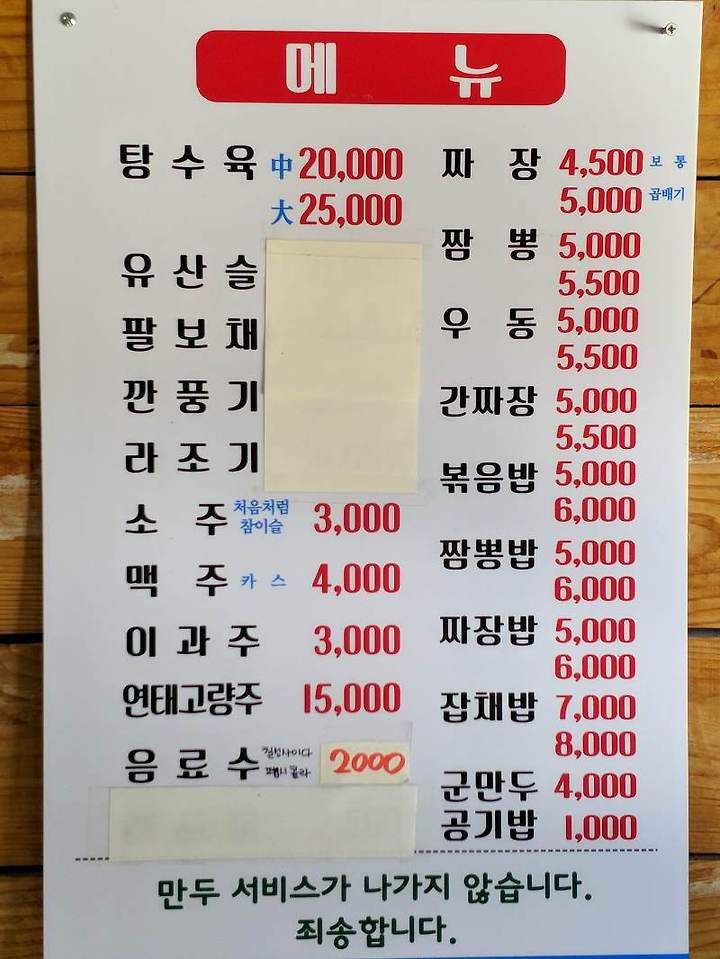 메 뉴
탕수육 中 20,000
大 25,000
유산슬
팔보채
깐풍기
라조기
소 주 처음처럼 참이슬 3,000
맥 주 카스 4,000
이과주 3,000
연태고량주 15,000
음료수 칠성사이다 펩시콜라 2000
짜 장 4,500 보통
5,000 곱배기
짬 뽕 5,000
5,500
우 동 5,000
5,500
간짜장 5,000
5,500
볶음밥 5,000
6,000
짬뽕밥 5,000
6,000
짜장밥 5,000
6,000
잡채밥 7,000
8,000
군만두 4,000
공기밥 1,000
만두 서비스가 나가지 않습니다.
죄송합니다.